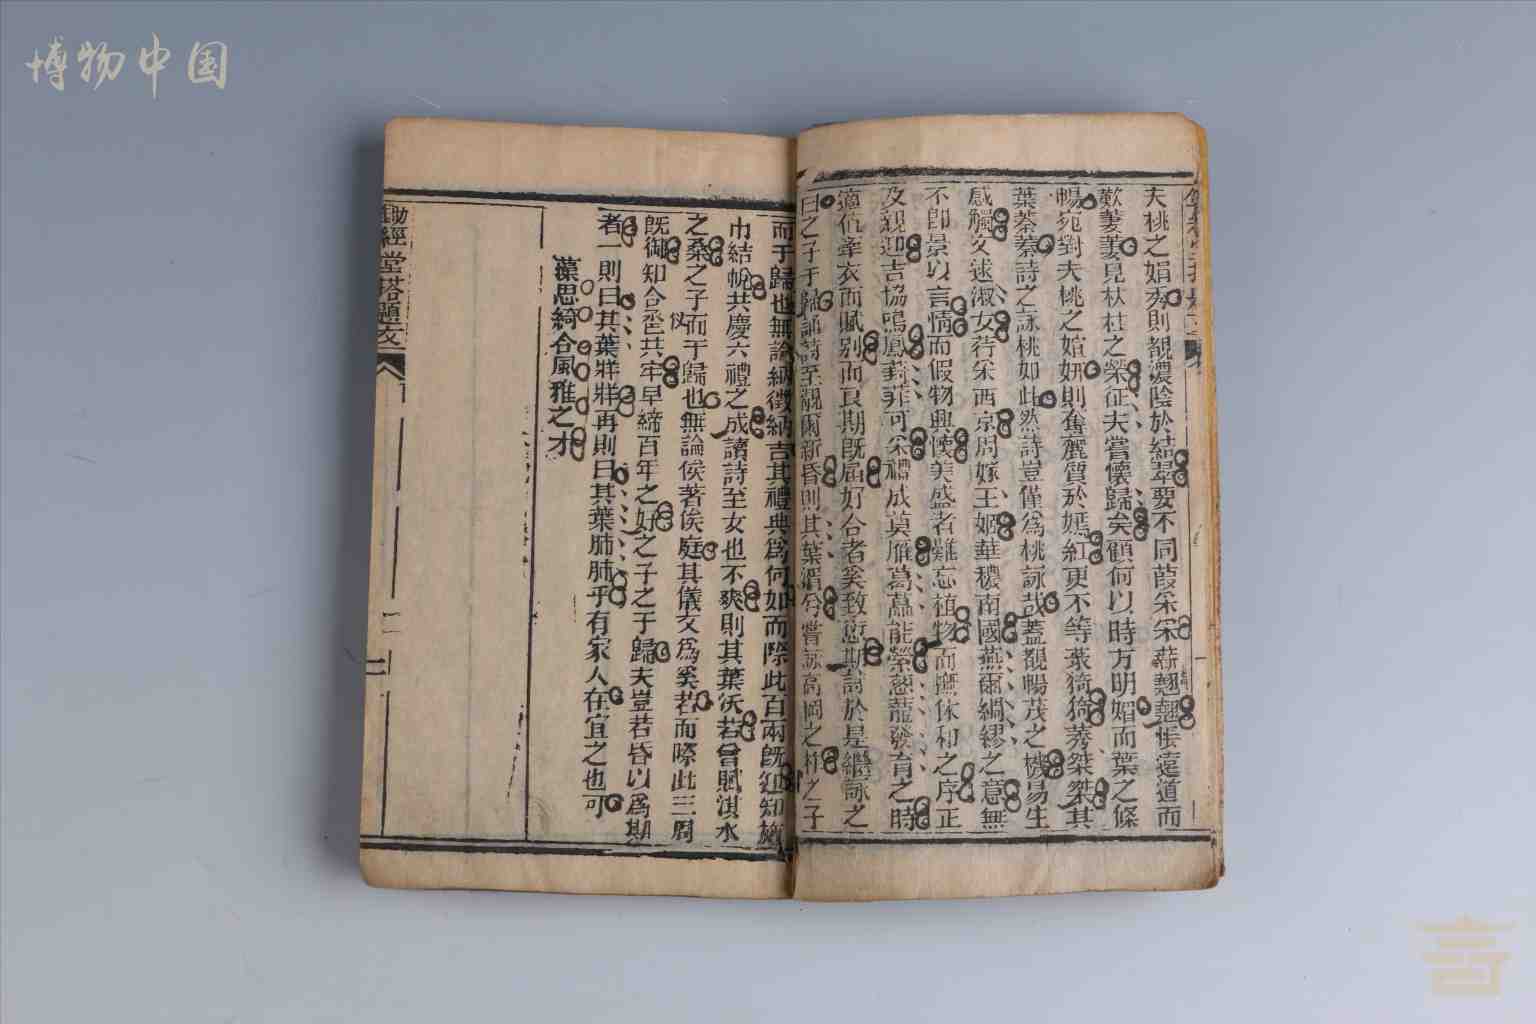 博物中国
夫桃之娟秀則覩濃陰於結翠要不同葭采采蘚翹翹悵遠道而
歎萋萋見杕杜之榮征夫嘗懷歸矣顧何以時方明媚而葉之條
暢宛對夫桃之媗妍則奮麗質於嫣紅更不等猗猗莠桀桀其
葉蓁蓁詩之詠桃如此然詩豈僅爲桃詠哉蓋覩暢茂之機易生
感觸文述淑女荇采西京周嫁王姬華穠南國燕爾綢繆之意無
不卽景以言情而假物興懷美盛者難忘植物而撫休和之序正
及親迎吉協鳴鳳葑菲可采禮成奠雁葛藟能縈慇蘢發育之時
適値牽衣而賦别而良期既屆好合者奚致愆期詩於是繼詠之
曰之子于歸誦詩至覯爾新昏則其葉湑兮嘗詠高岡之柞之子
而于歸也無論納徵納吉其禮典爲何如而際此百兩既迎知施
巾結帨共慶六禮之成讀詩至女也不爽則其葉沃若曾賦淇水
之桑之子而于歸也無論俟著俟庭其儀文爲奚若而際此三周
既御知合巹共牢早締百年之好之子之于歸夫豈若昏以爲期
者一則曰其葉牂牂再則曰其葉肺肺乎有家人在宜之也可
藻思綺合風雅之才
鋤經堂搭題文
二